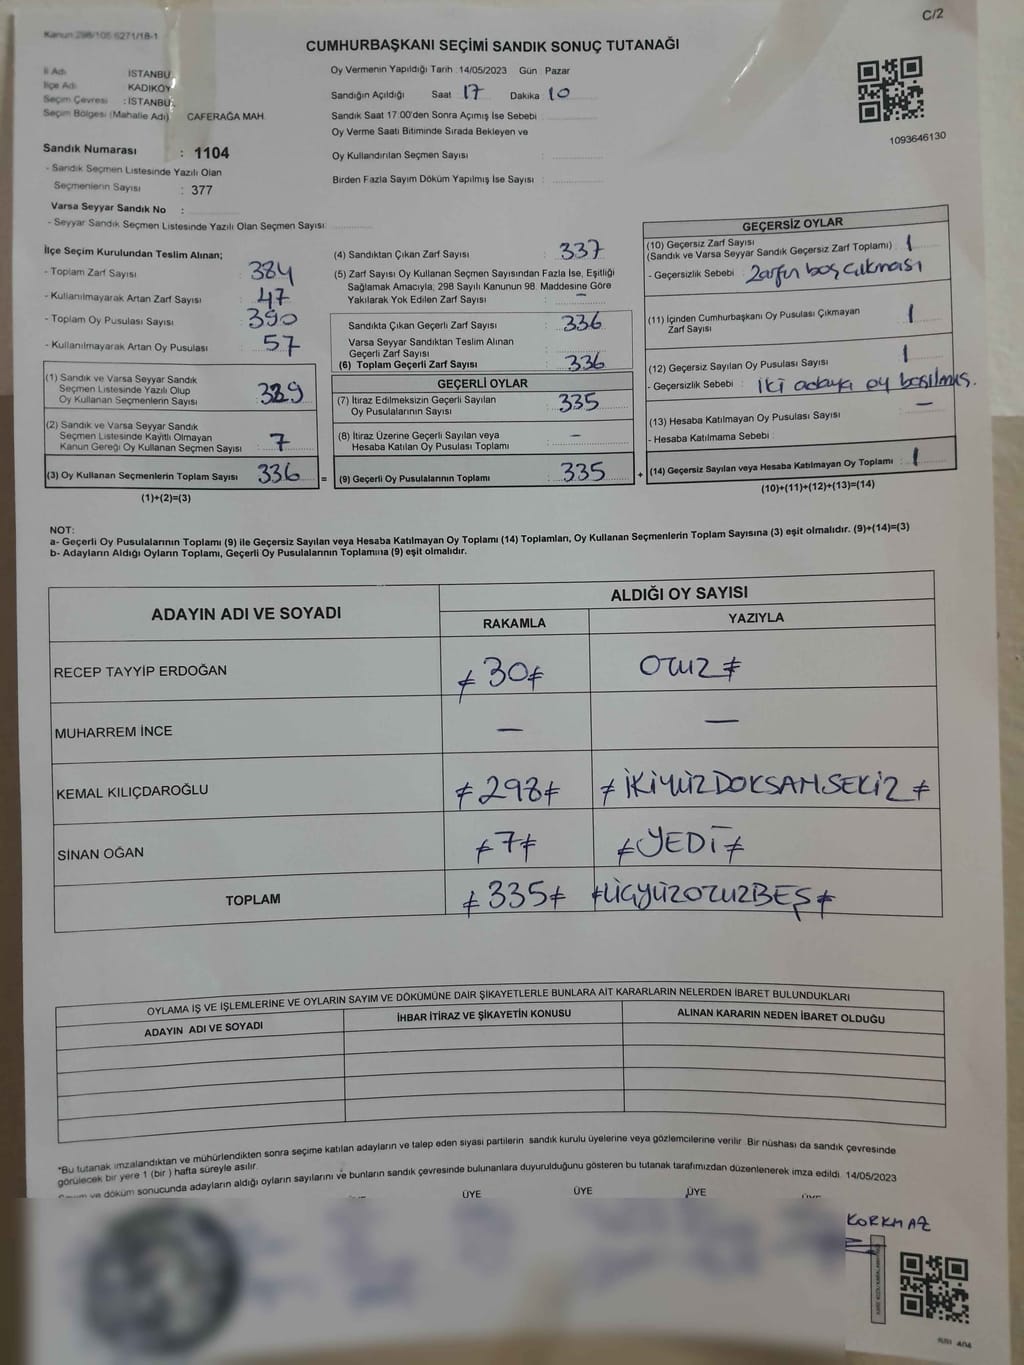 C/2
Kanun 298/105 6271/18-1
CUMHURBAŞKANI SEÇİMİ SANDIK SONUÇ TUTANAĞI
İl Adı İSTANBUL
İlçe Adı KADIKÖY
Seçim Çevresi : İSTANBUL
Seçim Bölgesi (Mahalle Adı) CAFERAĞA MAH.
Sandık Numarası : 1104
- Sandık Seçmen Listesinde Yazılı Olan
Seçmenlerin Sayısı : 377
Varsa Seyyar Sandık No :
- Seyyar Sandık Seçmen Listesinde Yazılı Olan Seçmen Sayısı:
Oy Vermenin Yapıldığı Tarih : 14/05/2023 Gün : Pazar
Sandığın Açıldığı Saat 17 Dakika 10
Sandık Saat 17:00'den Sonra Açımış İse Sebebi :
Oy Verme Saati Bitiminde Sırada Bekleyen ve
Oy Kullandırılan Seçmen Sayısı :
Birden Fazla Sayım Döküm Yapılmış İse Sayısı :
1093646130
İlçe Seçim Kurulundan Teslim Alınan;
- Toplam Zarf Sayısı : 384
- Kullanılmayarak Artan Zarf Sayısı : 47
- Toplam Oy Pusulası Sayısı : 390
- Kullanılmayarak Artan Oy Pusulası : 57
(1) Sandık ve Varsa Seyyar Sandık
Seçmen Listesinde Yazılı Olup
Oy Kullanan Seçmenlerin Sayısı : 329
(2) Sandık ve Varsa Seyyar Sandık
Seçmen Listesinde Kayıtlı Olmayan
Kanun Gereği Oy Kullanan Seçmen Sayısı : 7
(3) Oy Kullanan Seçmenlerin Toplam Sayısı : 336
(1)+(2)=(3)
(4) Sandıktan Çıkan Zarf Sayısı : 337
(5) Zarf Sayısı Oy Kullanan Seçmen Sayısından Fazla İse, Eşitliği
Sağlamak Amacıyla, 298 Sayılı Kanunun 98. Maddesine Göre
Yakılarak Yok Edilen Zarf Sayısı : –
Sandıkta Çıkan Geçerli Zarf Sayısı : 336
Varsa Seyyar Sandıktan Teslim Alınan
Geçerli Zarf Sayısı :
(6) Toplam Geçerli Zarf Sayısı : 336
GEÇERLİ OYLAR
(7) İtiraz Edilmeksizin Geçerli Sayılan
Oy Pusulalarının Sayısı : 335
(8) İtiraz Üzerine Geçerli Sayılan veya
Hesaba Katılan Oy Pusulası Toplamı : –
= (9) Geçerli Oy Pusulalarının Toplamı : 335
GEÇERSİZ OYLAR
(10) Geçersiz Zarf Sayısı
(Sandık ve Varsa Seyyar Sandık Geçersiz Zarf Toplamı) : 1
- Geçersizlik Sebebi : Zarfın boş çıkması
(11) İçinden Cumhurbaşkanı Oy Pusulası Çıkmayan
Zarf Sayısı : 1
(12) Geçersiz Sayılan Oy Pusulası Sayısı : 1
- Geçersizlik Sebebi : iki adaya oy basılmış.
(13) Hesaba Katılmayan Oy Pusulası Sayısı : –
- Hesaba Katılmama Sebebi :
+ (14) Geçersiz Sayılan veya Hesaba Katılmayan Oy Toplamı : 1
(10)+(11)+(12)+(13)=(14)
NOT:
a- Geçerli Oy Pusulalarının Toplamı (9) ile Geçersiz Sayılan veya Hesaba Katılmayan Oy Toplamı (14) Toplamları, Oy Kullanan Seçmenlerin Toplam Sayısına (3) eşit olmalıdır. (9)+(14)=(3)
b- Adayların Aldığı Oyların Toplamı, Geçerli Oy Pusulalarının Toplamına (9) eşit olmalıdır.
ADAYIN ADI VE SOYADI ALDIĞI OY SAYISI
RAKAMLA YAZIYLA
RECEP TAYYİP ERDOĞAN ≠30≠ OTUZ ≠
MUHARREM İNCE – –
KEMAL KILIÇDAROĞLU ≠298≠ ≠ İKİYÜZDOKSANSEKİZ ≠
SİNAN OĞAN ≠7≠ ≠YEDİ≠
TOPLAM ≠335≠ ≠ÜÇYÜZOTUZBEŞ≠
OYLAMA İŞ VE İŞLEMLERİNE VE OYLARIN SAYIM VE DÖKÜMÜNE DAİR ŞİKAYETLERLE BUNLARA AİT KARARLARIN NELERDEN İBARET BULUNDUKLARI
ADAYIN ADI VE SOYADI İHBAR İTİRAZ VE ŞİKAYETİN KONUSU ALINAN KARARIN NEDEN İBARET OLDUĞU
*Bu tutanak imzalandıktan ve mühürlendikten sonra seçime katılan adayların ve talep eden siyasi partilerin sandık kurulu üyelerine veya gözlemcilerine verilir. Bir nüshası da sandık çevresinde
görülecek bir yere 1 (bir) hafta süreyle asılır.
Sayım ve döküm sonucunda adayların aldığı oyların sayılarını ve bunların sandık çevresinde bulunanlara duyurulduğunu gösteren bu tutanak tarafımızdan düzenlenerek imza edildi. 14/05/2023
ÜYE ÜYE ÜYE
KORKMAZ